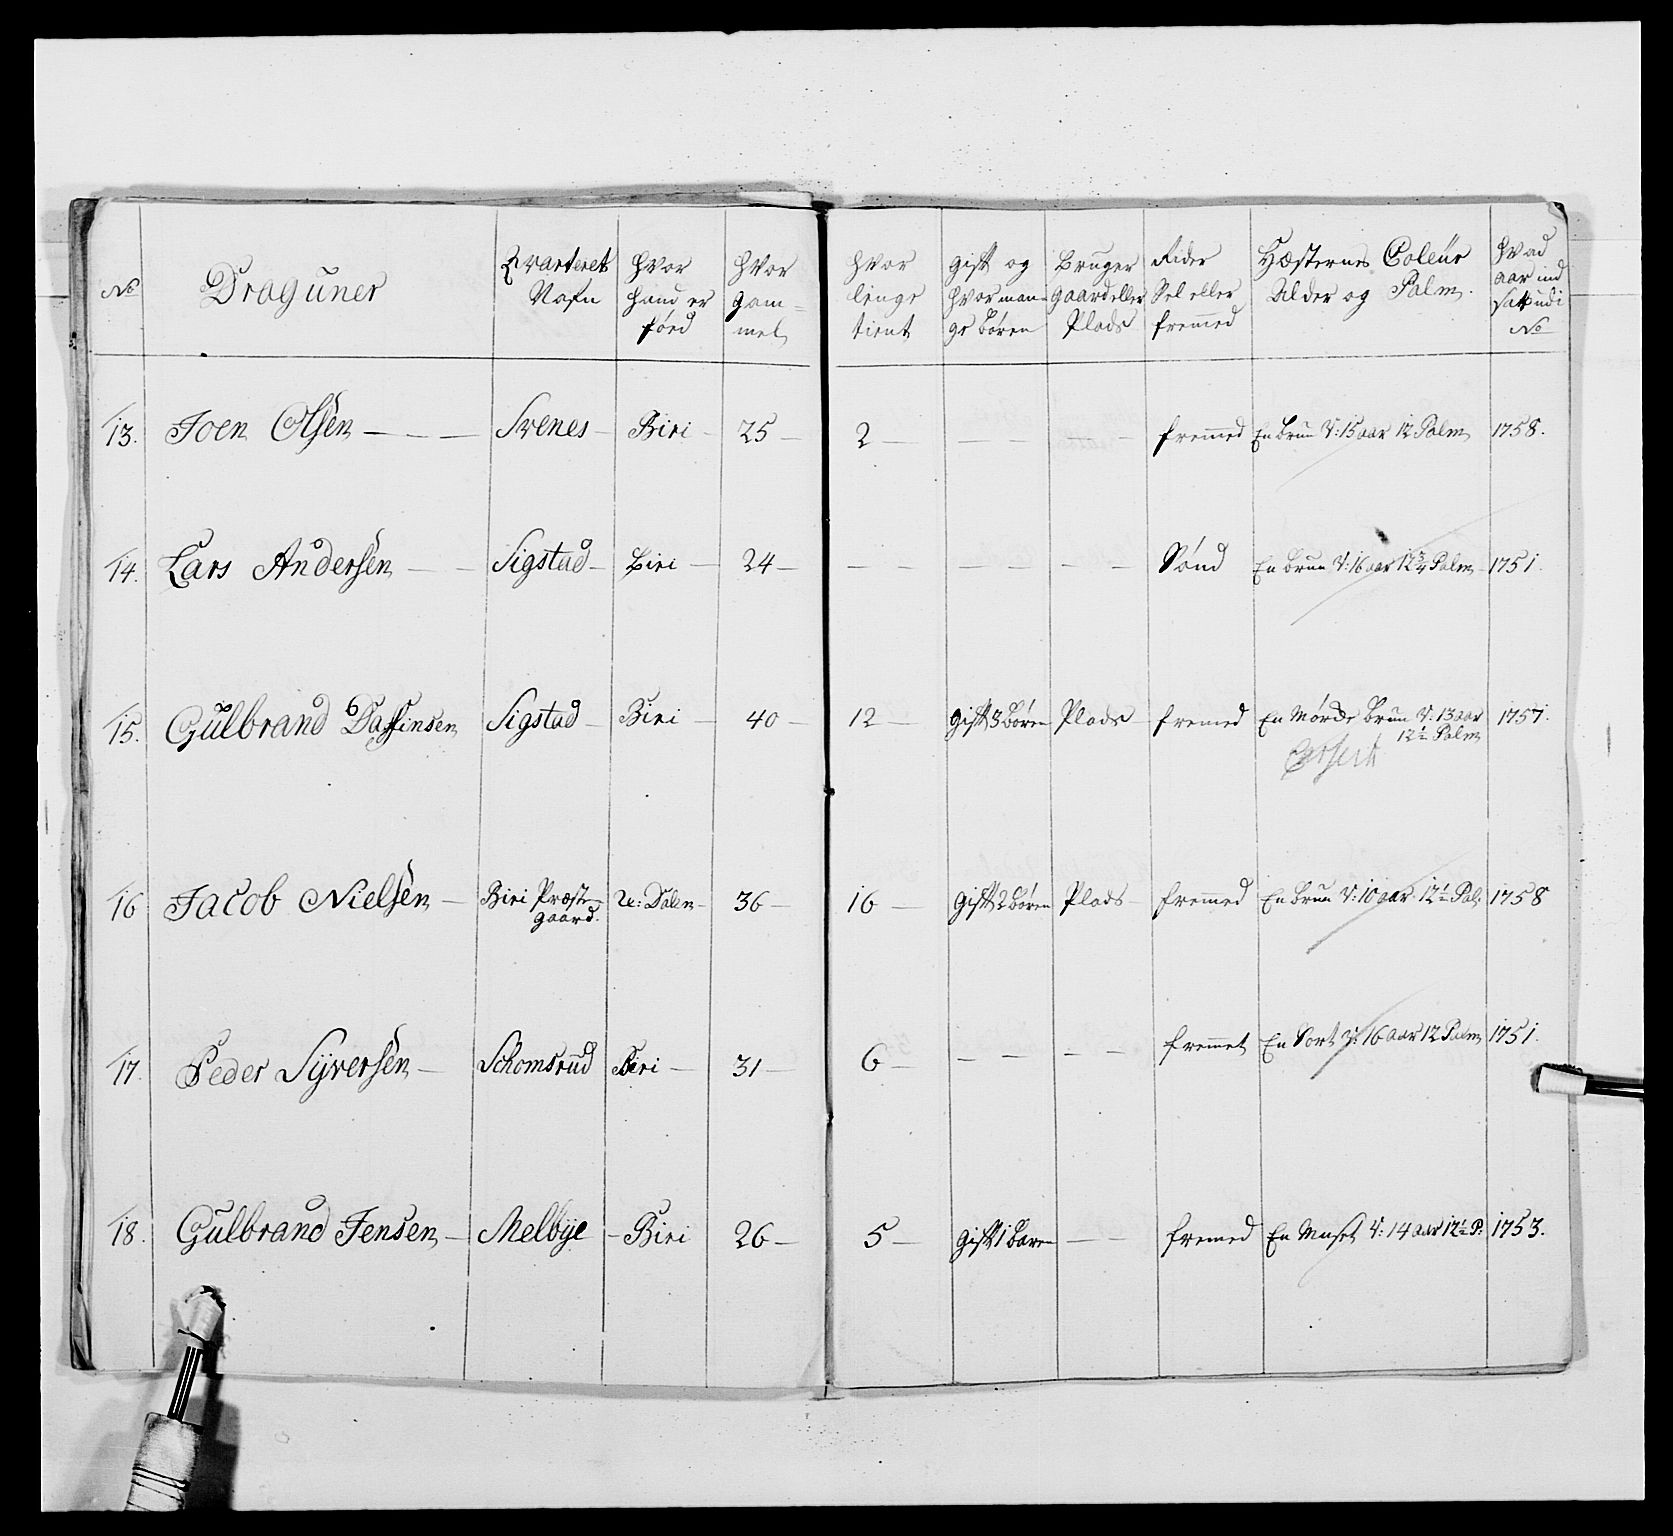 No Draguner Qvarteret Nafn Hvor Hand er föed Hvor gam= mel Hvor lenge tient Gift og Hvor man= ge Bören Bruger Gaard eller Plads Rider Sel eller fremmed Hæsternes Coleur Alder og Palm. Hvad aar ind sadt udi No
13. Joen Olsen — — — Svenes — Biri — 25 — 2 — — — — fremmed En brun V: 15 aar 12 Palm 1758.
14. Lars Andersen — — Sigstad — Biri — 24 — — — — — — — Sönd En brun V: 16 aar 12 3/4 Palm 1751.
15. Gulbrand Sigstad — Biri — 40 — 12 — Gift 3 Bören Plads — fremed En Mörck brun V: 13 aar 1757.
12 1/2 Palm
Cassert
16 Jacob Nielsen — Biri Præste= 2e: Dalen — 36 — 16 — Gift 2 Bören Plads — fremmed En brun V: 10 aar 12 1/2 Pal: 1758
gaard.
17. Peder Syversen — Schomsrud Biri — 31 — 6 — — — — — fremmet En Sort V: 16 aar 12 Palm 1751.
18. Gulbrand Jensen — Melbye — Biri 26 — 5 — Gift 1 Baren — — fremed En Muset V: 14 aar 12 1/2 P: 1753.